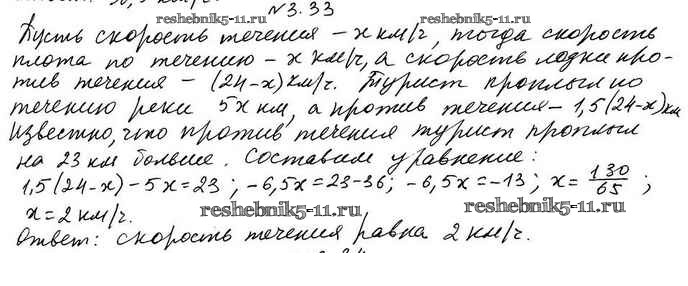 №3.33
reshebnik5-11.ru
Пусть скорость течения - x км/ч, тогда скорость
плота по течению - x км/ч, а скорость лодки про-
тив течения - (24-x) км/ч. Турист проплыл по
течению реки 5x км, а против течения - 1,5(24-x) км
Известно, что против течения турист проплыл
на 23 км больше. Составим уравнение:
reshebnik5-11.ru
1,5(24-x)-5x=23; -6,5x=23-36; -6,5x=-13; x=130/65;
reshebnik5-11.ru
reshebnik5-11.ru
x=2 км/ч.
Ответ: скорость течения равна 2 км/ч.